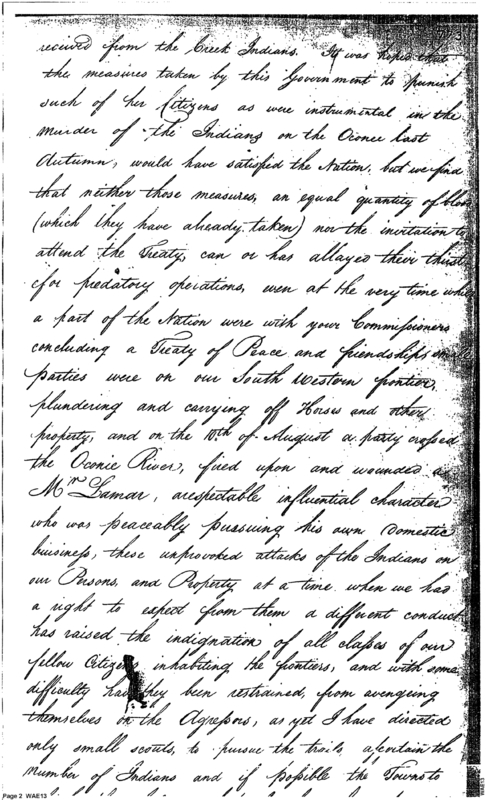 received from the Creek Indians. It was hoped that
the measures taken by this Government to punish
such of her Citizens as were instrumental in the
murder of the Indians on the Oconee last
Autumn, would have satisfied the Nation, but we find
that neither those measures, an equal quantity of bloo
(which they have already taken) nor the invitation to
attend the Treaty, can or has allayed their thirst
for predatory operations, even at the very time whi
a part of the Nation were with your Commissioners
concluding a Treaty of Peace and friendship small
parties were on our South Western frontier,
plundering and carrying off Horses and other
property, and on the 10th of August a party crossed
the Oconie River, fired upon and wounded a
Mr. Lamar, a respectable influential character
who was peaceably pursuing his own Domestic
buisiness, these unprovoked attacks of the Indians on
our Persons, and Property at a time when we had
a right to expect from them a different conduct
has raised the indignation of all classes of our
fellow Citizens inhabiting the frontiers, and with some
difficulty have they been restrained, from avenging
themselves on the Agressors, as yet I have directed
only small scouts, to pursue the trails, ascertain the
Number of Indians and if possible the Towns to
Page 2 WAE13